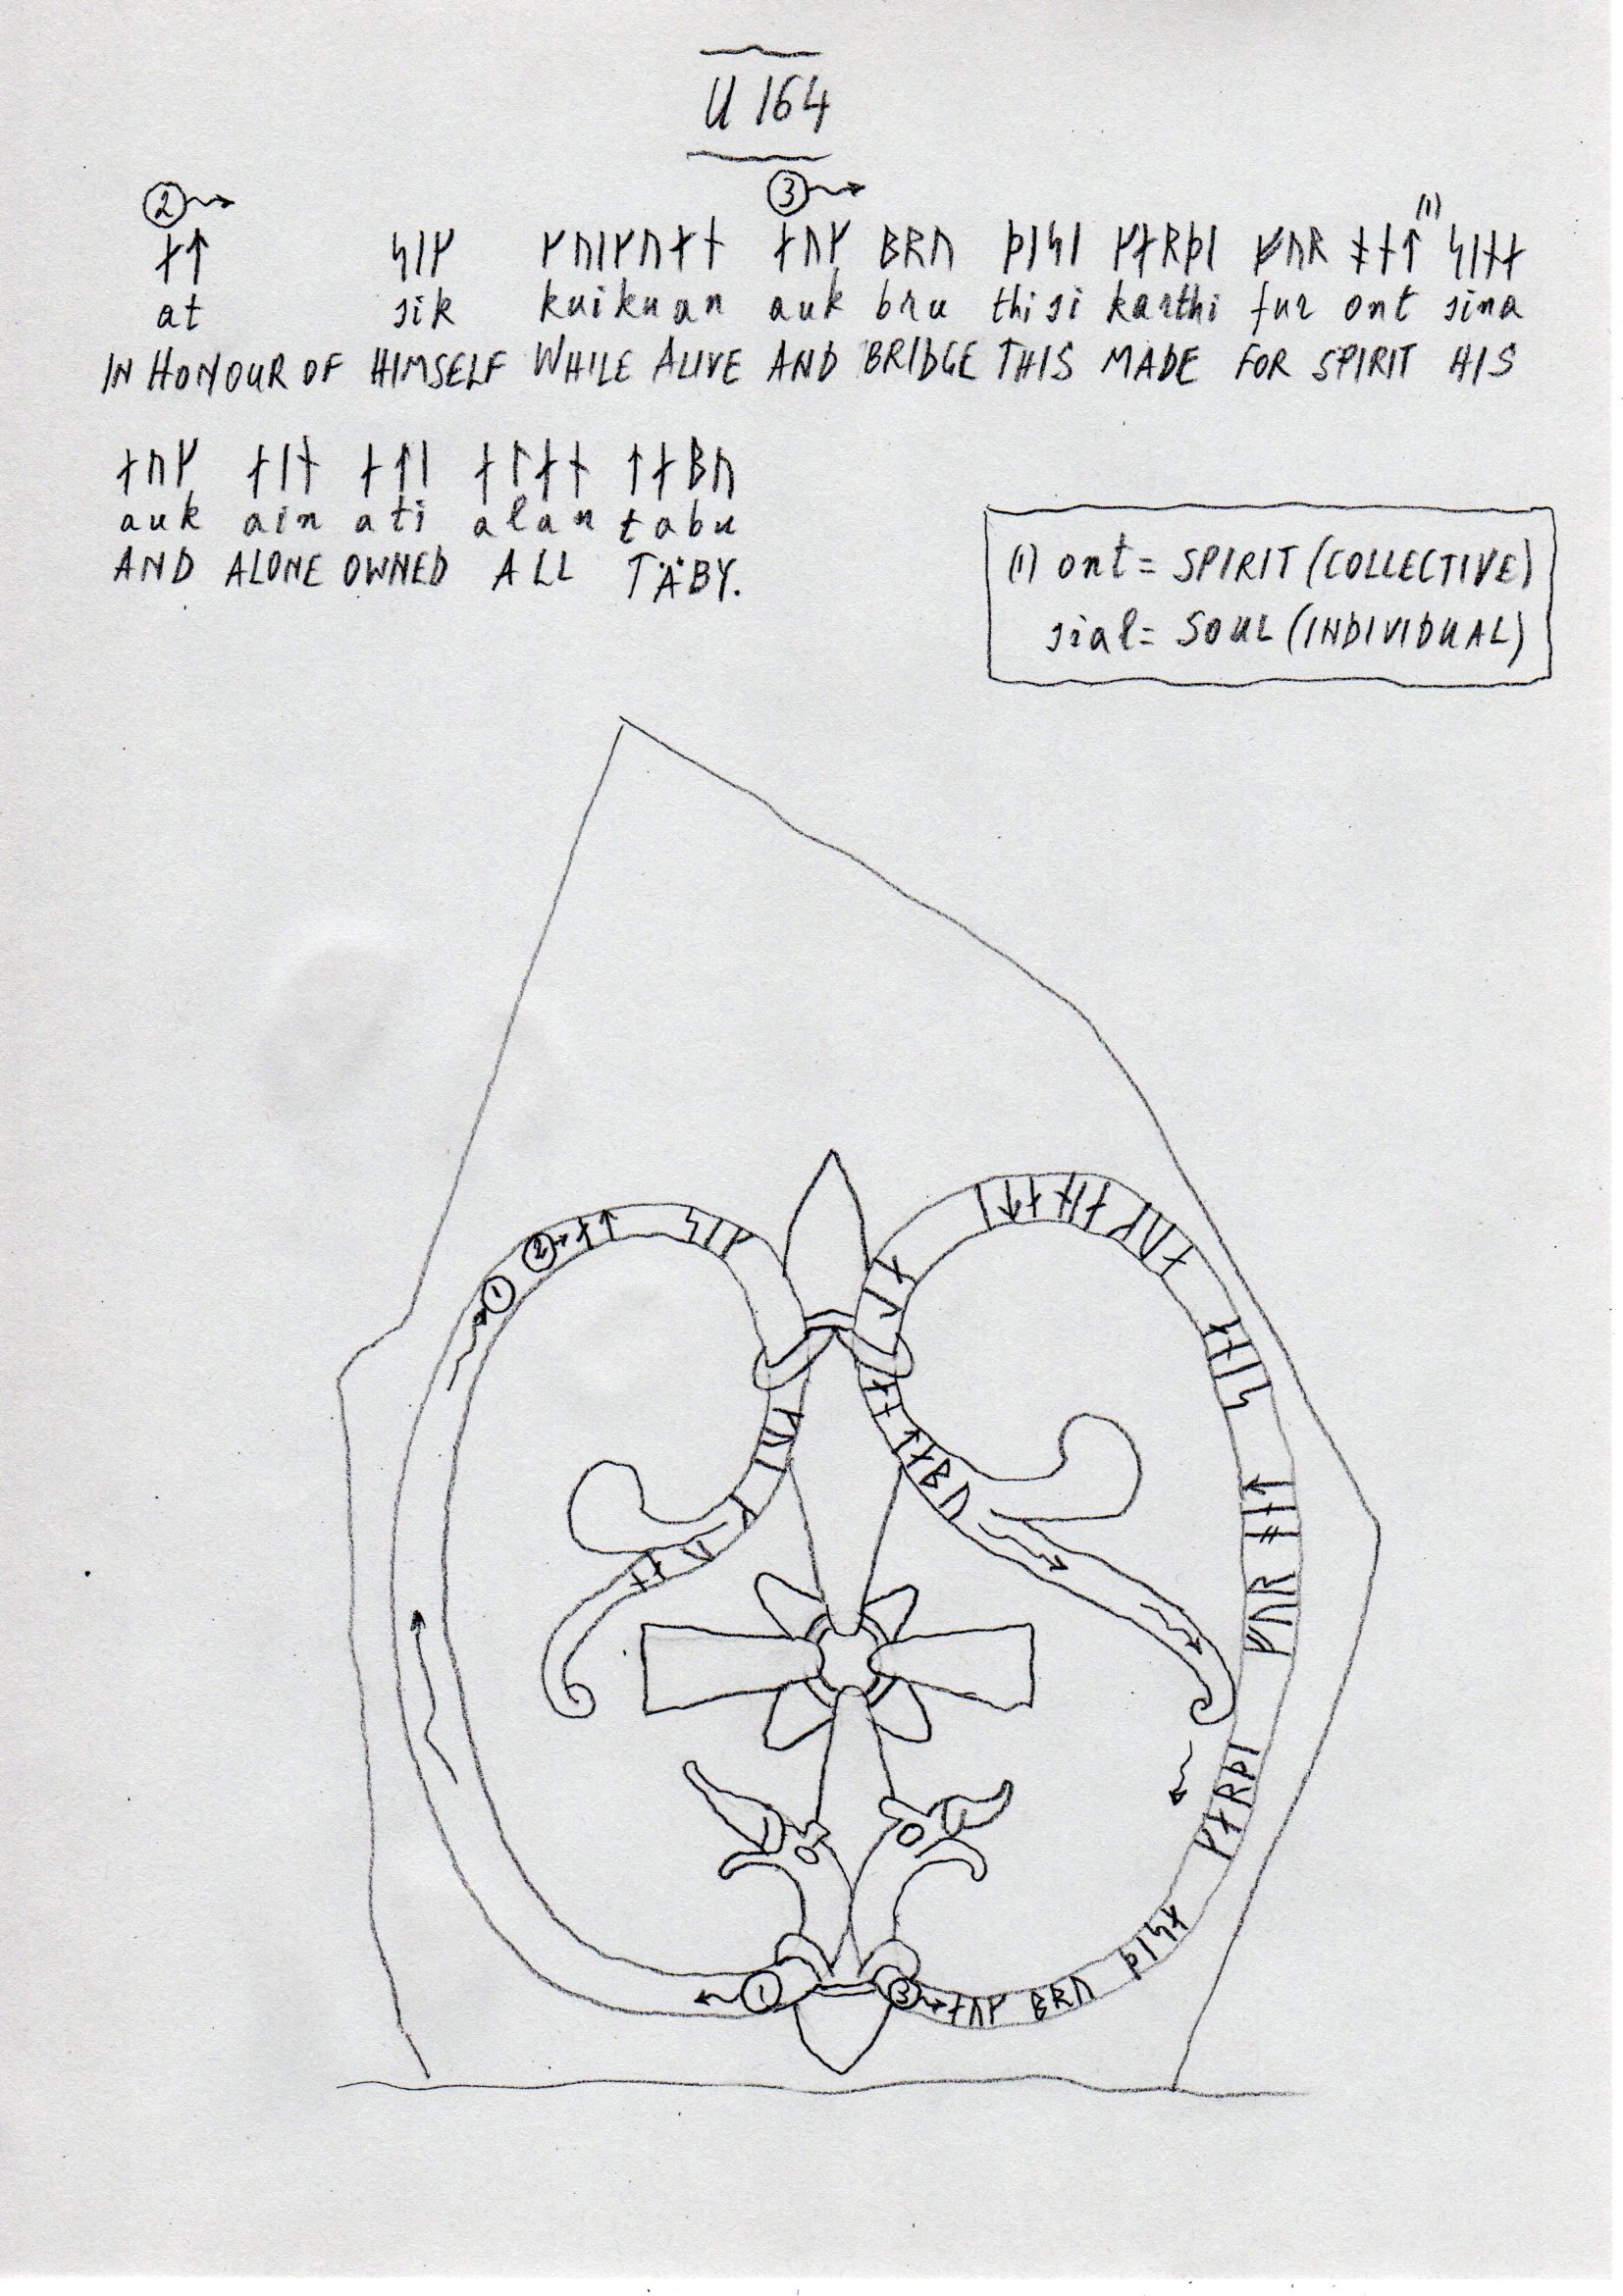 U 164
② ③
ᛅᛏ ᛋᛁᚴ ᚴᚢᛁᚴᚢᛅᚾ ᛅᚢᚴ ᛒᚱᚢ ᚦᛁᛋᛁ ᚴᛅᚱᚦᛁ ᚠᚢᚱ ᚬᚾᛏ (1) ᛋᛁᚾᛅ
at sik kuikuan auk bru thisi karthi fur ont sina
IN HONOUR OF HIMSELF WHILE ALIVE AND BRIDGE THIS MADE FOR SPIRIT HIS
ᛅᚢᚴ ᛅᛁᚾ ᛅᛏᛁ ᛅᛚᛅᚾ ᛏᛅᛒᚢ
auk ain ati alan tabu
AND ALONE OWNED ALL TÄBY.
(1) ont = SPIRIT (COLLECTIVE)
sial = SOUL (INDIVIDUAL)
① ② ᛅᛏ ᛋᛁᚴ
ᚴᚢᛁᚴᚢᛅᚾ
① ③ ᛅᚢᚴ ᛒᚱᚢ ᚦᛁᛋᛁ ᚴᛅᚱᚦᛁ ᚠᚢᚱ ᚬᚾᛏ ᛋᛁᚾᛅ ᛅᚢᚴ ᛅᛁᚾ ᛅᛏᛁ ᛅᛚᛅᚾ ᛏᛅᛒᚢ